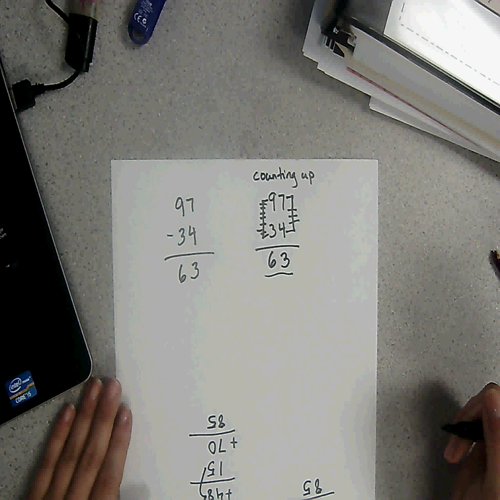 counting up
97
-34
63
97
34
63
85
+70
15
+48
85
intel
CORE i5